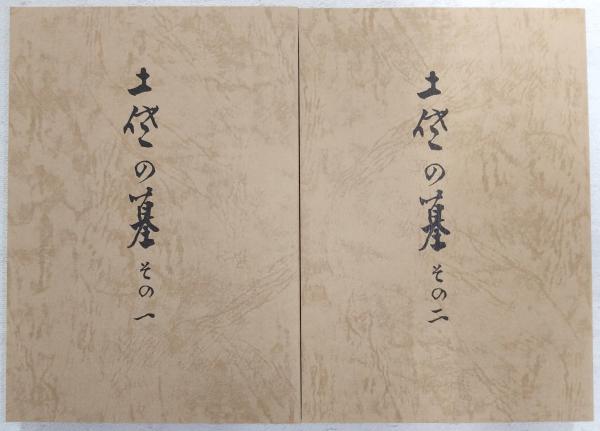 土佐の墓 その一
土佐の墓 その二